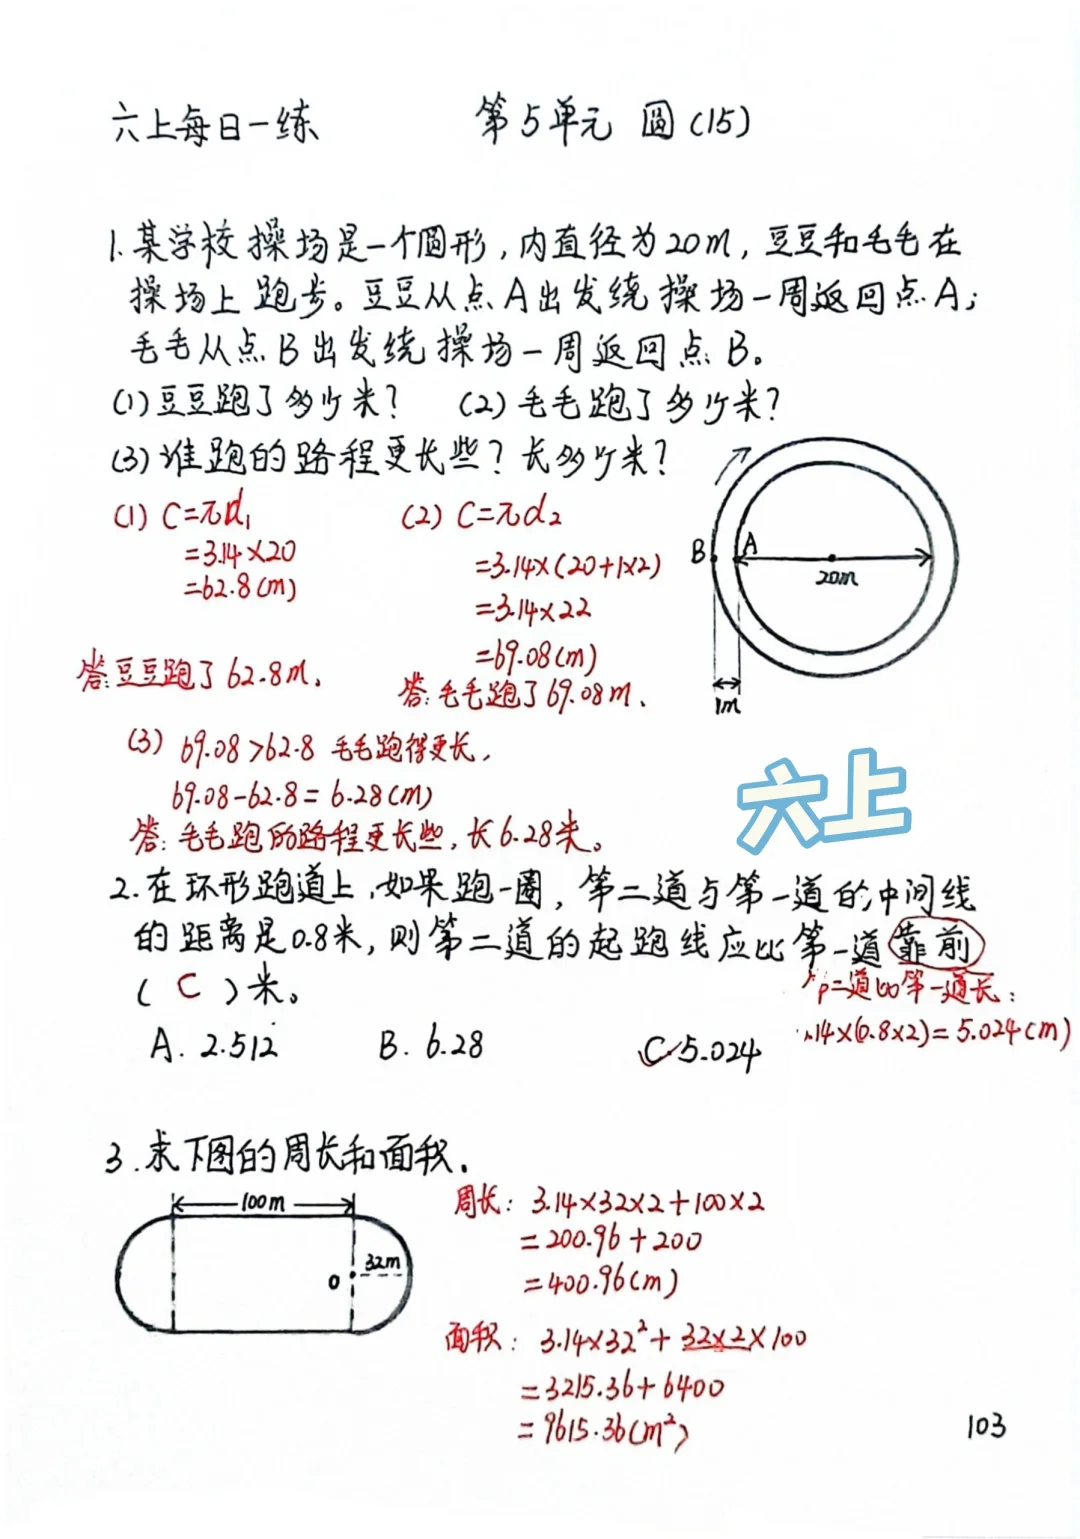 六上每日一练 第5单元 圆(15)
1.某学校操场是一个圆形,内直径为20m,豆豆和毛毛在
操场上跑步。豆豆从点A出发绕操场一周返回点A;
毛毛从点B出发绕操场一周返回点B。
(1)豆豆跑了多少米? (2)毛毛跑了多少米?
(3)谁跑的路程更长些?长多少米?
(1) C=πd₁
=3.14×20
=62.8(m)
答:豆豆跑了62.8m.
(2) C=πd₂
=3.14×(20+1×2)
=3.14×22
=69.08(m)
答:毛毛跑了69.08m.
B A
20m
1m
(3) 69.08>62.8 毛毛跑得更长,
69.08-62.8=6.28(m)
答:毛毛跑的路程更长些,长6.28米。
六上
2.在环形跑道上,如果跑一圈,第二道与第一道的中间线
的距离是0.8米,则第二道的起跑线应比第一道靠前
( C )米。
二道比第一道长:
.14×(0.8×2)=5.024(m)
A. 2.512 B. 6.28 C. 5.024
3.求下图的周长和面积.
100m
32m
O
周长: 3.14×32×2+100×2
=200.96+200
=400.96(m)
面积: 3.14×32²+32×2×100
=3215.36+6400
=9615.36(m²)
103